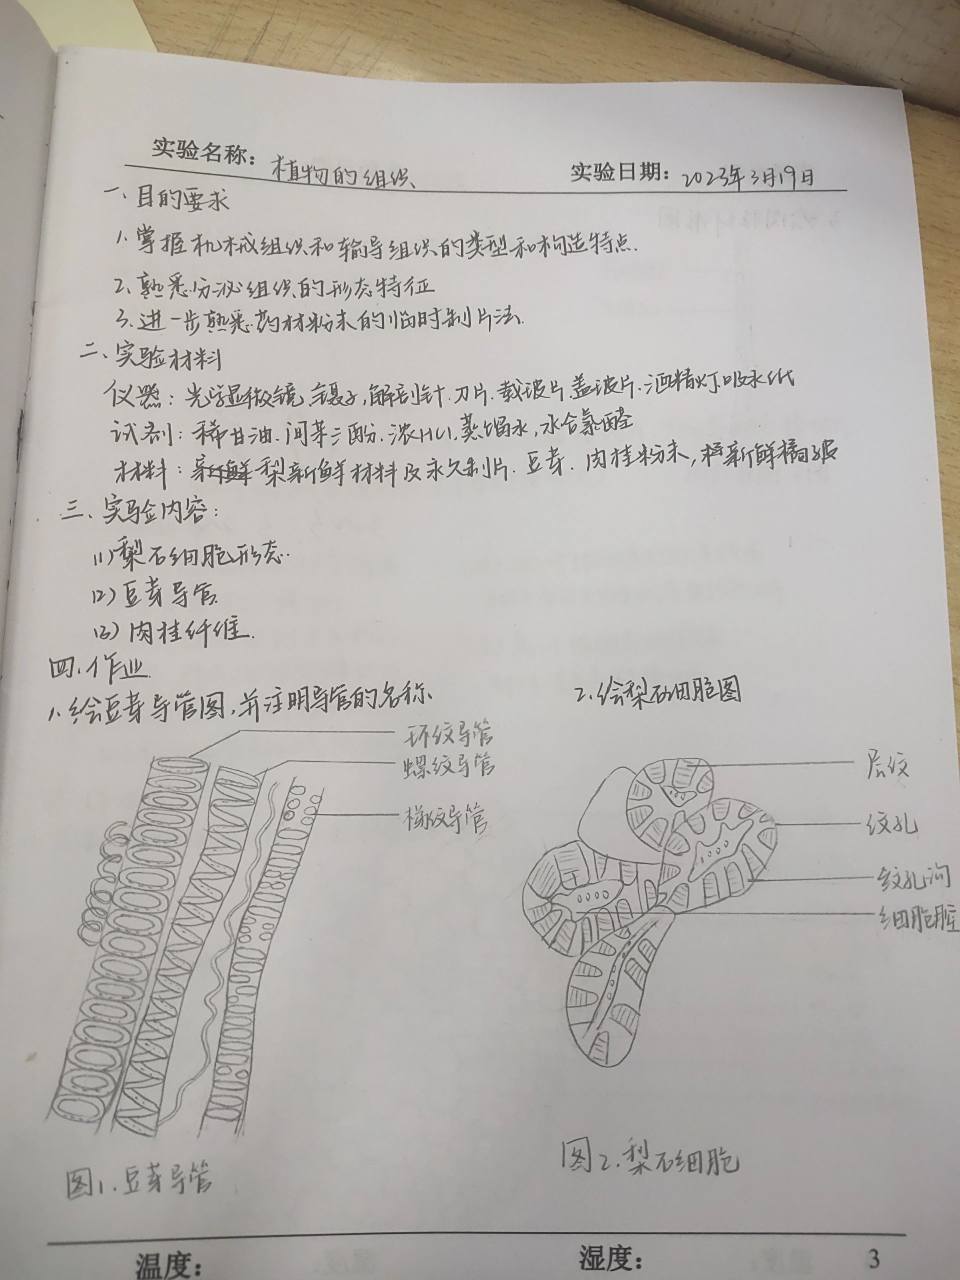 实验名称：植物的组织 实验日期：2023年3月19日
一、目的要求
1.掌握机械组织和输导组织的类型和构造特点.
2.熟悉分泌组织的形态特征
3.进一步熟悉药材粉末的临时制片法.
二、实验材料
仪器：光学显微镜,镊子,解剖针.刀片.载玻片.盖玻片.酒精灯.吸水纸
试剂：稀甘油.间苯三酚.浓HCl,蒸馏水,水合氯醛
材料：梨新鲜材料及永久制片.豆芽.肉桂粉末,新鲜橘皮
三、实验内容：
(1)梨石细胞形态.
(2)豆芽导管
(3)肉桂纤维.
四.作业
1.绘豆芽导管图,并注明导管的名称. 2.绘梨石细胞图
环纹导管
螺纹导管
梯纹导管
层纹
纹孔
纹孔沟
细胞腔
图1.豆芽导管
图2.梨石细胞
温度： 湿度： 3